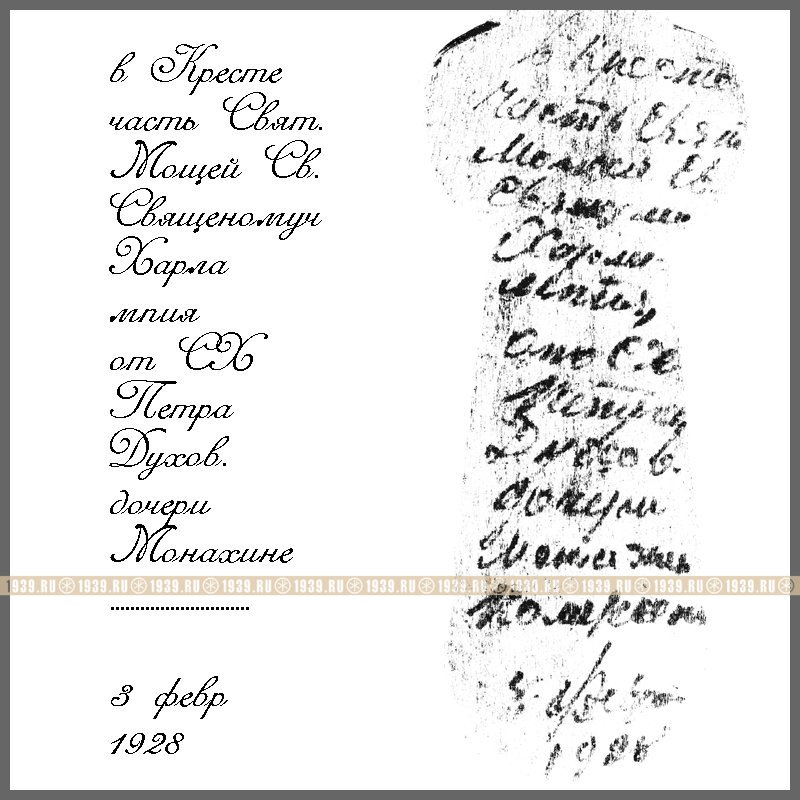 в Кресте
часть Свят.
Мощей Св.
Священомуч
Харла
мпия
от СХ
Петра
Духов.
дочери
Монахине
3 февр
1928
в Кресте
часть Свят
Мощей Св.
Харла
мпия
от СХ
Петра
Духов.
дочери
3 февр
1928
1939.RU 1939.RU 1939.RU 1939.RU 1939.RU 1939.RU 1939.RU 1939.RU 1939.RU 1939.RU 1939.RU